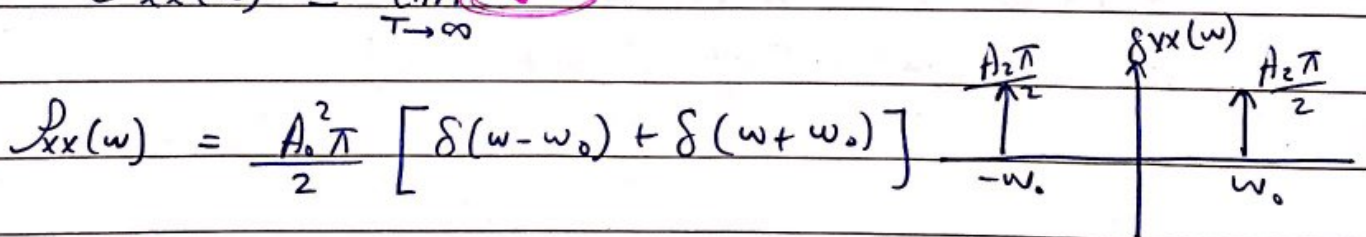 T→∞
𝒮xx(ω) = A₀²π/2 [δ(ω-ω₀) + δ(ω+ω₀)]
δxx(ω)
A₂π/2
A₂π/2
-ω₀
ω₀